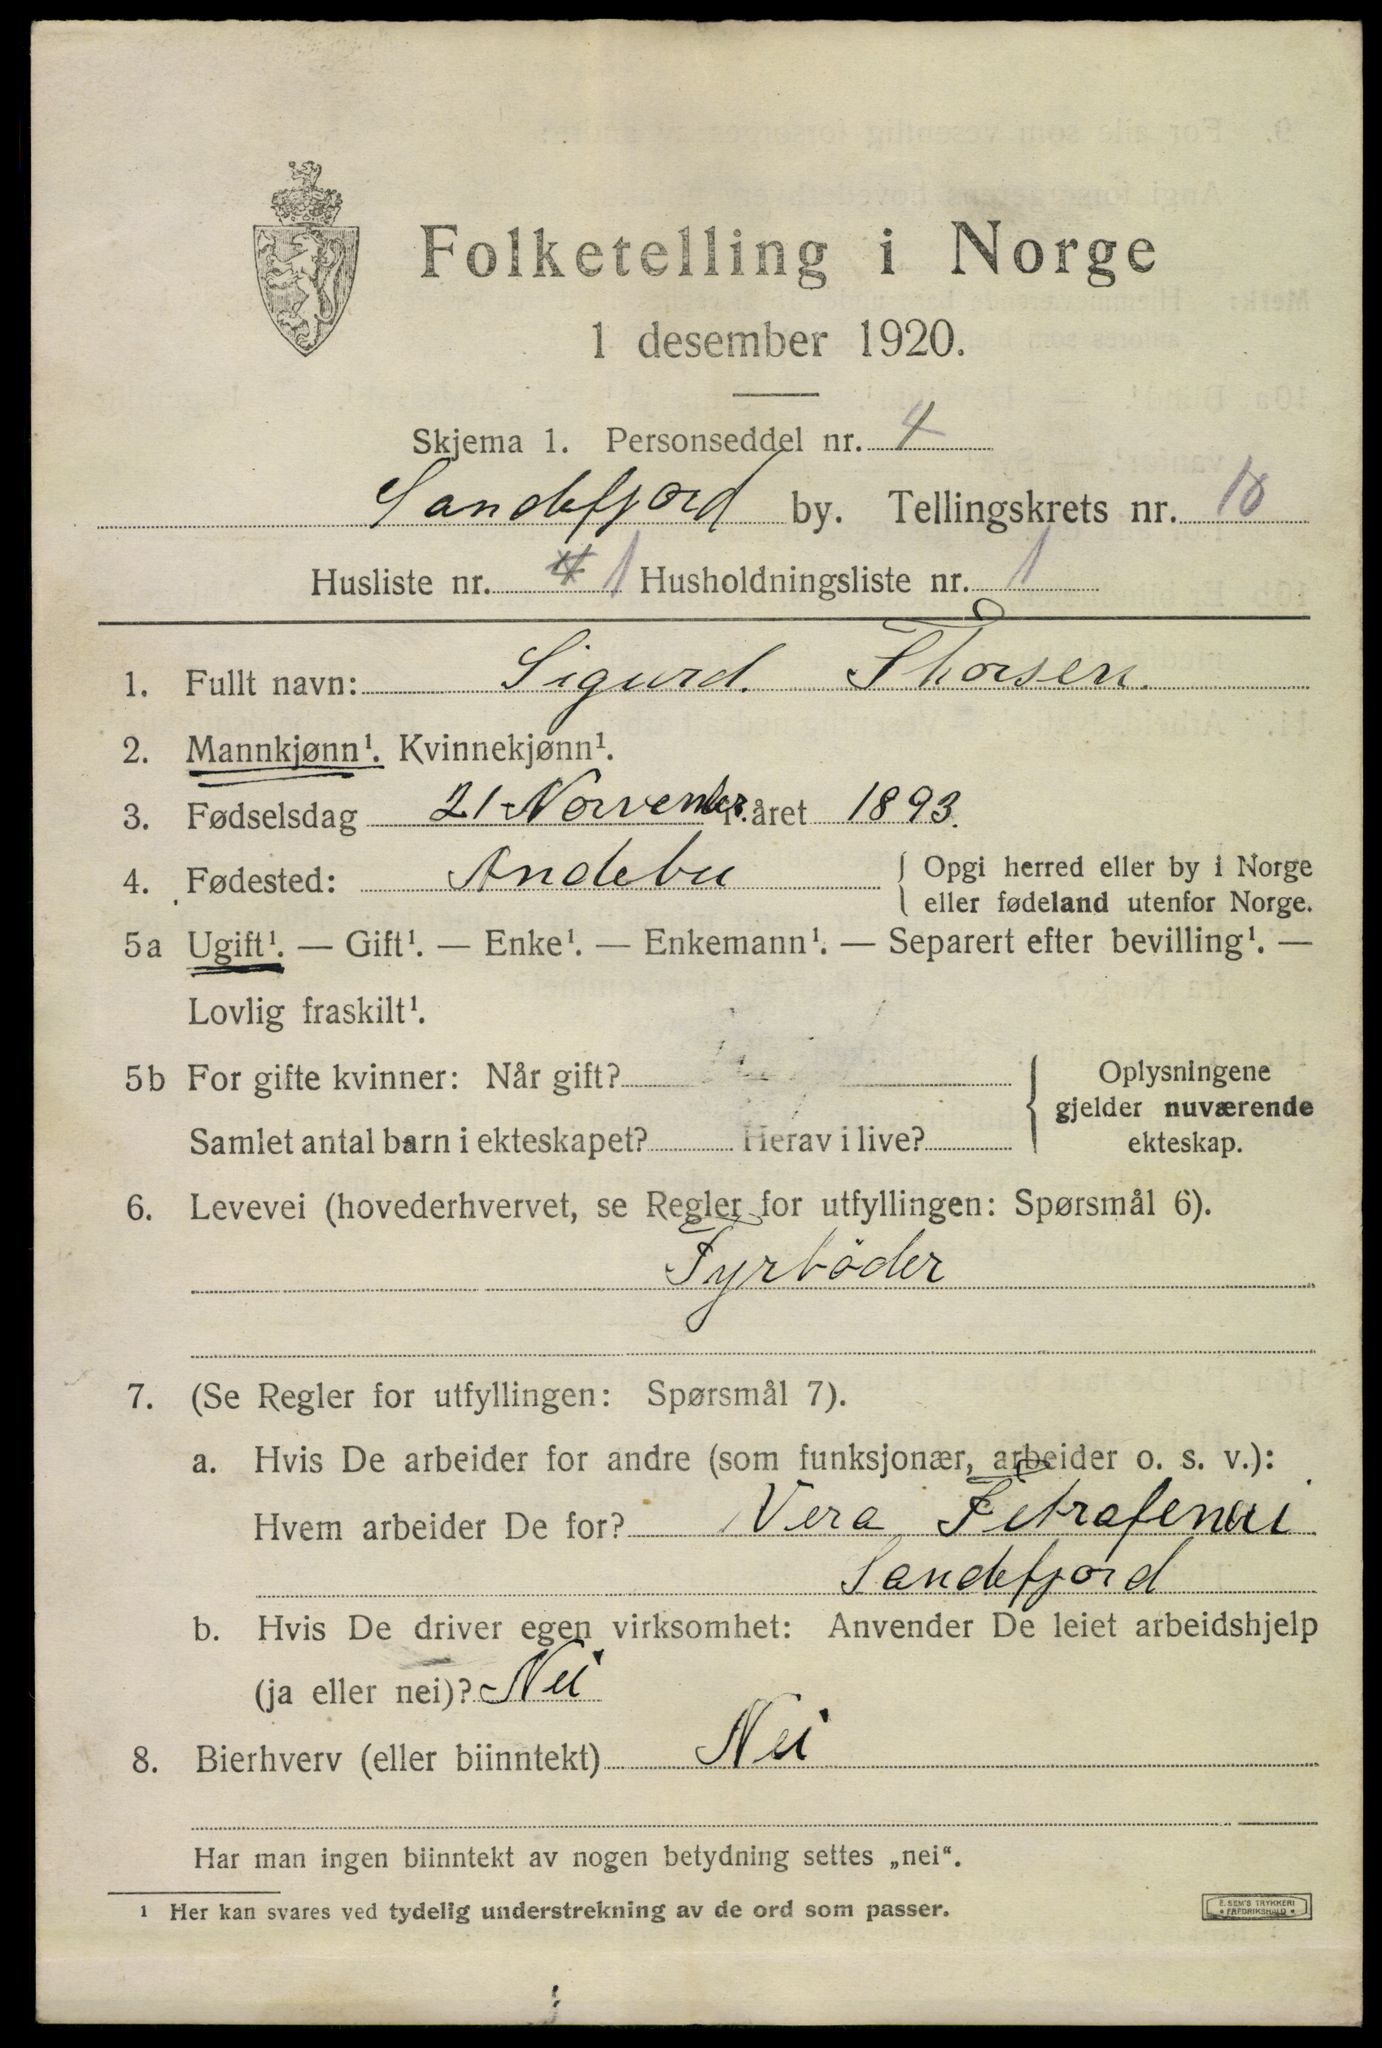 Folketelling i Norge
1 desember 1920.
Skjema 1. Personseddel nr. 4
Sandefjord by. Tellingskrets nr. 10
Husliste nr. 4 1 Husholdningsliste nr. 1
1. Fullt navn: Sigurd Thorsen.
2. Mannkjønn¹. Kvinnekjønn¹.
3. Fødselsdag 21 November i året 1893.
4. Fødested: Andebu { Opgi herred eller by i Norge
eller fødeland utenfor Norge.
5a Ugift¹. — Gift¹. — Enke¹. — Enkemann¹. — Separert efter bevilling¹. —
Lovlig fraskilt¹.
5b For gifte kvinner: Når gift? { Oplysningene
gjelder nuværende
Samlet antal barn i ekteskapet? Herav i live? ekteskap.
6. Levevei (hovederhvervet, se Regler for utfyllingen: Spørsmål 6).
Fyrböder
7. (Se Regler for utfyllingen: Spørsmål 7).
a. Hvis De arbeider for andre (som funksjonær, arbeider o. s. v.):
Hvem arbeider De for? Vera
Sandefjord
b. Hvis De driver egen virksomhet: Anvender De leiet arbeidshjelp
(ja eller nei)? Nei
8. Bierhverv (eller biinntekt) Nei
Har man ingen biinntekt av nogen betydning settes „nei“.
¹ Her kan svares ved tydelig understrekning av de ord som passer.
E. SEM'S TRYKKERI
FREDRIKSHALD